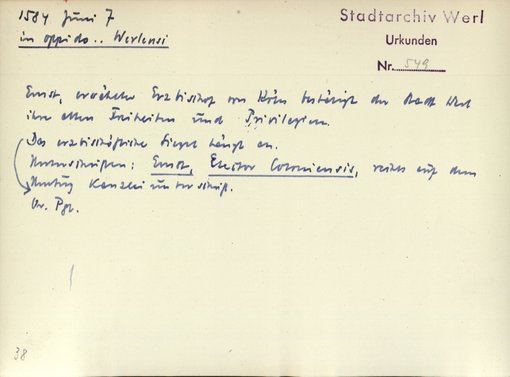 1584 Juni 7
in oppido .. Werlensi
Stadtarchiv Werl
Urkunden
Nr. 549
Ernst, erwählter Erzbischof von Köln bestätigt der Stadt Werl
ihre alten Freiheiten und Privilegien.
Das erzbischöfliche Siegel hängt an.
Unterschriften: Ernst, Elector Coloniensis, rechts auf dem
Umbug Kanzleiunterschrift.
Or. Pgt.
38